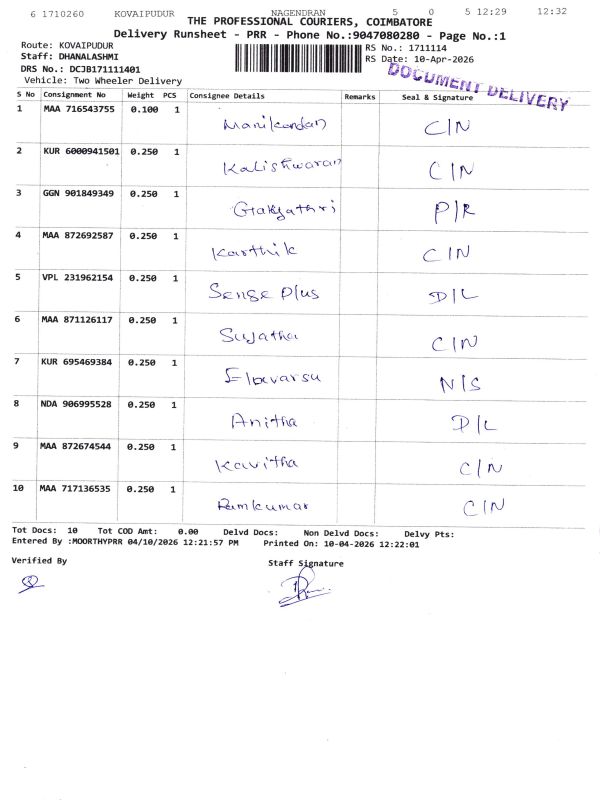 6 1710260 KOVAIPUDUR NAGENDRAN 5 0 5 12:29 12:32
THE PROFESSIONAL COURIERS, COIMBATORE
Delivery Runsheet - PRR - Phone No.:9047080280 - Page No.:1
Route: KOVAIPUDUR RS No.: 1711114
Staff: DHANALASHMI RS Date: 10-Apr-2026
DRS No.: DCJB171111401 DOCUMENT DELIVERY
Vehicle: Two Wheeler Delivery
S No Consignment No Weight PCS Consignee Details Remarks Seal & Signature
1 MAA 716543755 0.100 1 Manikandan C/N
2 KUR 6000941501 0.250 1 Kalishwaran C/N
3 GGN 901849349 0.250 1 P/R
4 MAA 872692587 0.250 1 Karthik C/N
5 VPL 231962154 0.250 1 Sense Plus D/L
6 MAA 871126117 0.250 1 Sujatha C/N
7 KUR 695469384 0.250 1 N/S
8 NDA 906995528 0.250 1 Anitha D/L
9 MAA 872674544 0.250 1 Kavitha C/N
10 MAA 717136535 0.250 1 Ramkumar C/N
Tot Docs: 10 Tot COD Amt: 0.00 Delvd Docs: Non Delvd Docs: Delvy Pts:
Entered By :MOORTHYPRR 04/10/2026 12:21:57 PM Printed On: 10-04-2026 12:22:01
Verified By Staff Signature